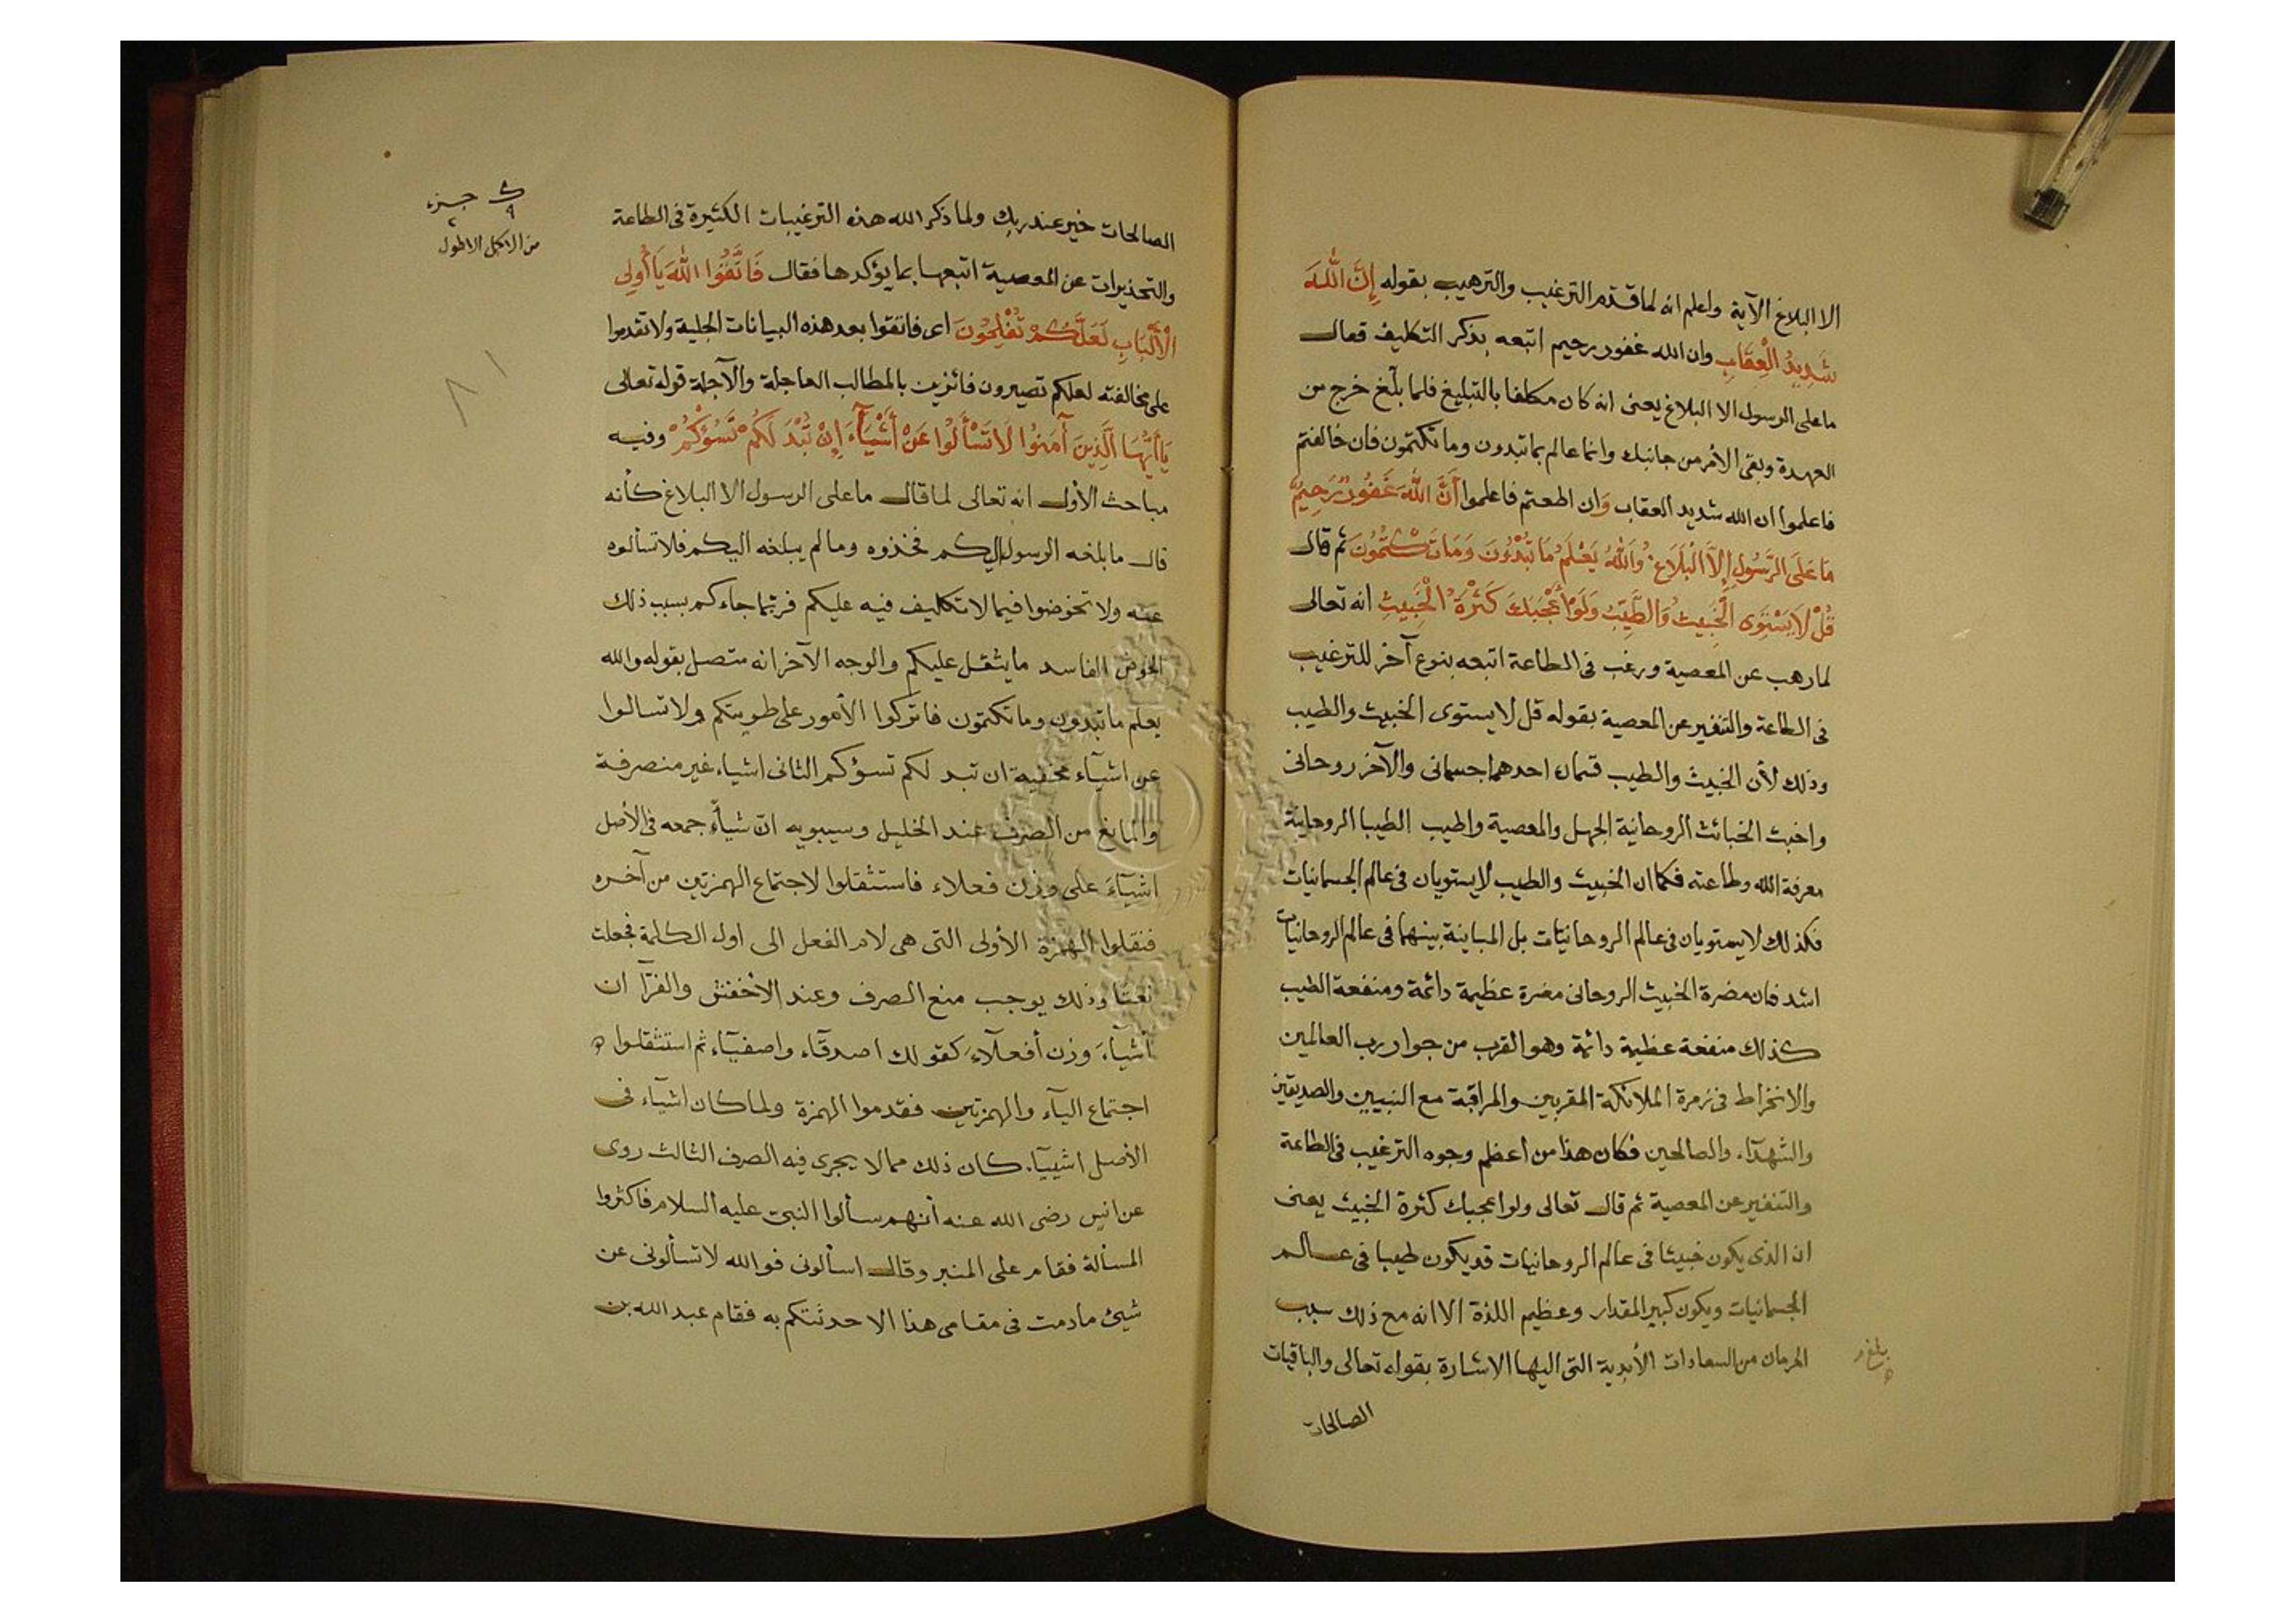 الا البلاغ الآية واعلم انه لما قدّم الترغيب والترهيب بقوله إِنَّ اللَّهَ
شَدِيدُ الْعِقَابِ وان الله غفور رحيم اتبعه بذكر التكليف فقال
ما على الرسول الا البلاغ يعنى انه كان مكلفا بالتبليغ فلما بلّغ خرج من
العهدة وبقى الأمر من جانبك وانما عالم بما تبدون وما تكتمون فان خالفتم
فاعلموا ان الله شديد العقاب وَان اطعتم فاعلموا أَنَّ اللَّهَ غَفُورٌ رَحِيمٌ
مَا عَلَى الرَّسُولِ إِلَّا الْبَلَاغُ وَاللَّهُ يَعْلَمُ مَا تُبْدُونَ وَمَا تَكْتُمُونَ ثم قال
قُلْ لَا يَسْتَوِى الْخَبِيثُ وَالطَّيِّبُ وَلَوْ أَعْجَبَكَ كَثْرَةُ الْخَبِيثِ انه تعالى
لما رهب عن المعصية ورغب فى الطاعة اتبعه بنوع آخر للترغيب
فى الطاعة والتنفير عن المعصية بقوله قل لا يستوى الخبيث والطيب
وذلك لأن الخبيث والطيب قسمان احدهما جسمانى والآخر روحانى
واخبث الخبائث الروحانية الجهل والمعصية واطيب الطيبا الروحانية
معرفة الله وطاعته فكما ان الخبيث والطيب لا يستويان فى عالم الجسمانيات
فكذلك لا يستويان فى عالم الروحانيّات بل المباينة بينهما فى عالم الروحانيات
اشد فان مضرة الخبيث الروحانى مضرة عظيمة دائمة ومنفعة الطيب
كذلك منفعة عظيمة دائمة وهو القرب من جوار رب العالمين
والانخراط فى زمرة الملائكة المقربين والمراقبة مع النبيين والصديقين
والشهدآء والصالحين فكان هذا من أعظم وجوه الترغيب فى الطاعة
والتنفير عن المعصية ثم قال تعالى ولو اعجبك كثرة الخبيث يعنى
ان الذى يكون خبيثا فى عالم الروحانيات قد يكون طيبا فى عالم
الجسمانيات ويكون كبير المقدار وعظيم اللذة الا انه مع ذلك سبب
الحرمان من السعادات الأبدية التى اليها الاشارة بقوله تعالى والباقيات
الصالحات
الصالحات خير عند ربك ولما ذكر الله هذه الترغيبات الكثيرة فى الطاعة
والتحذيرات عن المعصية اتبعها بما يؤكدها فقال فَاتَّقُوا اللَّهَ يَا أُولِى
الْأَلْبَابِ لَعَلَّكُمْ تُفْلِحُونَ اى فاتقوا بعد هذه البيانات الجلية ولا تقدموا
على مخالفته لعلكم تصيرون فائزين بالمطالب العاجلة والآجلة قوله تعالى
يَا أَيُّهَا الَّذِينَ آمَنُوا لَا تَسْأَلُوا عَنْ أَشْيَآءَ إِنْ تُبْدَ لَكُمْ تَسُؤْكُمْ وفيه
مباحث الأول انه تعالى لما قال ما على الرسول الا البلاغ كأنه
قال ما بلغه الرسول اليكم فخذوه وما لم يبلغه اليكم فلا تسألوه
عنه ولا تخوضوا فيما لا تكليف فيه عليكم فربّما جاءكم بسبب ذلك
الخوض الفاسد ما يثقل عليكم والوجه الآخر انه متصل بقوله والله
يعلم ما تبدون وما تكتمون فاتركوا الأمور على طويتكم ولا تسالوا
عن اشيآء مخفية ان تبد لكم تسؤكم الثانى اشياء غير منصرفة
والمانع من الصرف عند الخليل وسيبويه انّ شيأ جمعه فى الأصل
اشيآءَ على وزن فعلاء فاستثقلوا لاجتماع الهمزتين من آخره
فنقلوا الهمزة الأولى التى هى لام الفعل الى اول الكلمة فجعلت
نعتا وذلك يوجب منع الصرف وعند الأخفش والفرّآ ان
أشيآءَ وزن أفعلآء كقولك اصدقآء واصفيآء ثم استثقلوا
اجتماع اليآء والهمزتين فقدموا الهمزة ولما كان اشيآء فى
الأصل اشيياء كان ذلك مما لا يجرى فيه الصرف الثالث روى
عن انس رضى الله عنه أنهم سألوا النبى عليه السلام فاكثروا
المسألة فقام على المنبر وقال اسألونى فو الله لا تسألونى عن
شيئ مادمت فى مقامى هذا الا حدثتكم به فقام عبد الله بن
٩ جزء
من الاكل الاطول
٨١